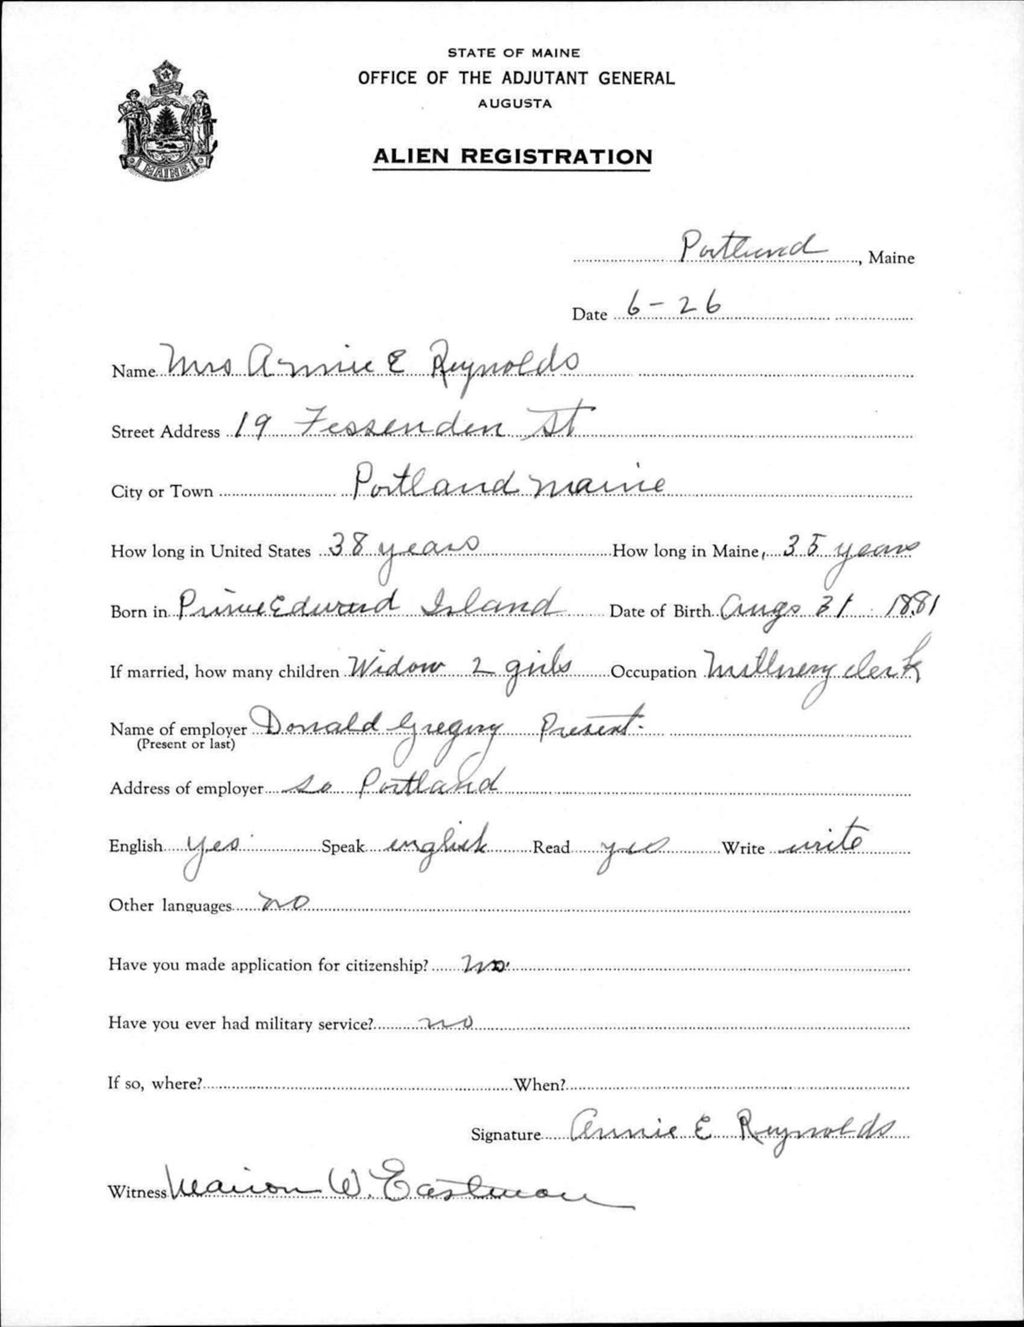 STATE OF MAINE
OFFICE OF THE ADJUTANT GENERAL
AUGUSTA
ALIEN REGISTRATION
MAINE
Portland, Maine
Date 6-26
Name Mrs Annie E Reynolds
Street Address 19 Fessenden St
City or Town Portland Maine
How long in United States 38 years How long in Maine, 35 years
Born in Prince Edward Island Date of Birth Augs 31 1881
If married, how many children Widow 2 girls Occupation Millnery clerk
Name of employer Donald Gregory Present.
(Present or last)
Address of employer so Portland
English yes Speak english Read yes Write write
Other languages no
Have you made application for citizenship? no
Have you ever had military service? no
If so, where? When?
Signature Annie E Reynolds
Witness Marion W. Eastman